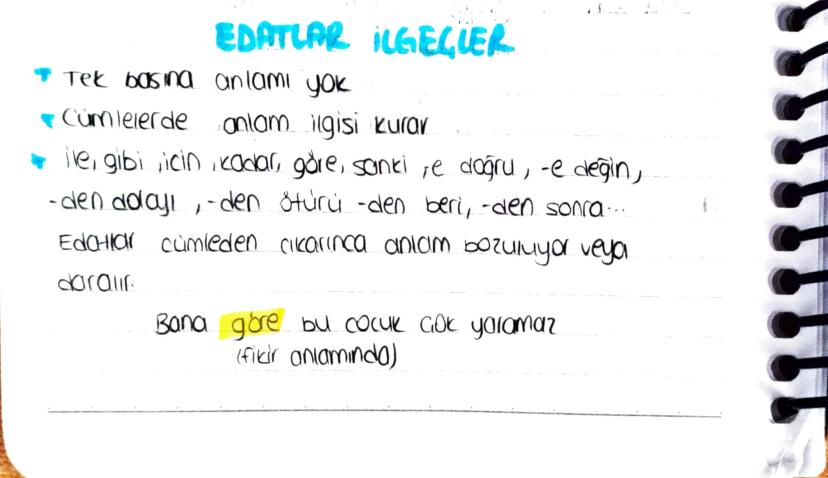 EDATLAR İLGEÇLER
Tek basına anlamı yok
Cümlelerde anlam ilgisi kurar
ile, gibi, için, kadar, göre, sanki, -e doğru, -e değin,
-den dolayı, -den ötürü -den beri, -den sonra...
Edatlar cümleden cıkarınca anlam bozuluyor veya
daralır.
Bana göre bu cocuk cok yaramaz
(fikir anlamında)